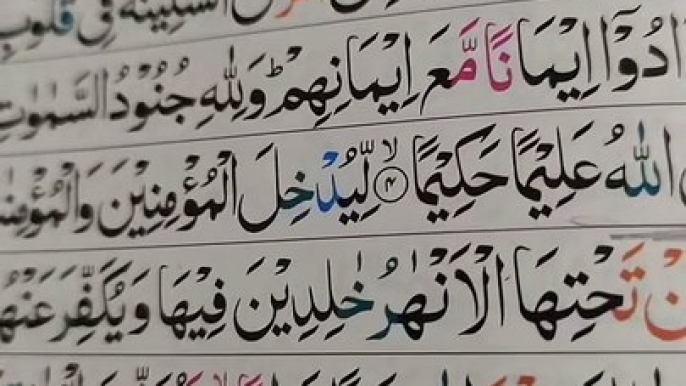 السَّكِيْنَةَ فِيْ قُلُوْبِ
دَادُوْۤا اِيْمَانًا مَّعَ اِيْمَانِهِمْ ؕ وَ لِلّٰهِ جُنُوْدُ السَّمٰوٰتِ
اللّٰهُ عَلِيْمًا حَكِيْمًا ۙ﴿۴﴾ لِّيُدْخِلَ الْمُؤْمِنِيْنَ وَالْمُؤْمِنٰ
نْ تَحْتِهَا الْاَنْهٰرُ خٰلِدِيْنَ فِيْهَا وَ يُكَفِّرَ عَنْهُ